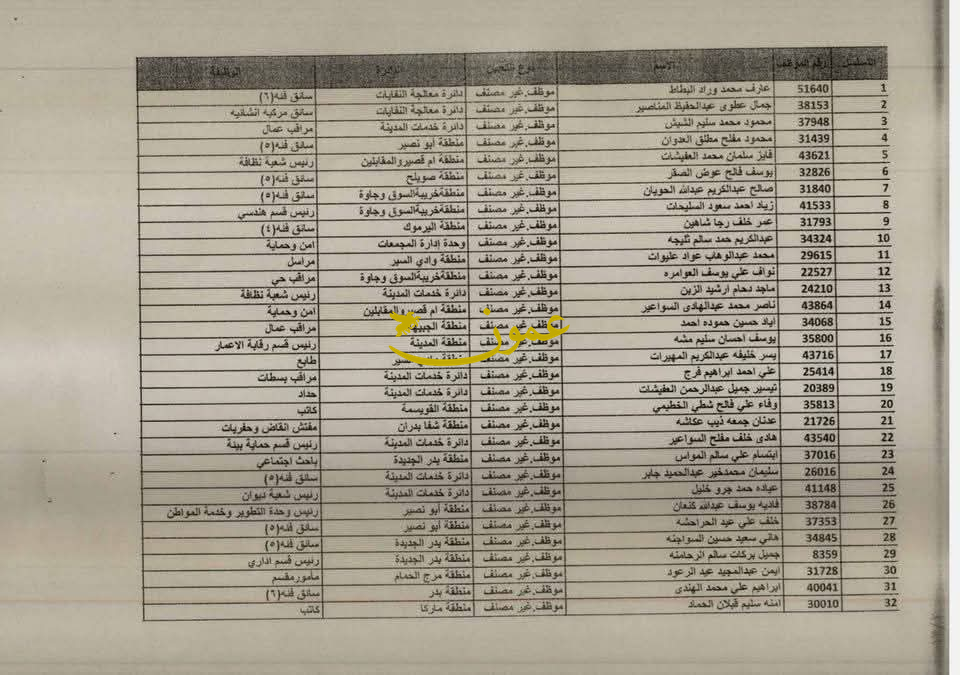 التسلسل رقم الموظف الاسم نوع التعيين الدائرة الوظيفة
1 51640 عارف محمد وراد البطاط موظف.غير مصنف دائرة معالجة النفايات سائق فئه(٦)
2 38153 جمال عطوى عبدالحفيظ المناصير موظف.غير مصنف دائرة معالجة النفايات سائق مركبه انشائيه
3 37948 محمود محمد سليم الشيش موظف.غير مصنف دائرة خدمات المدينة مراقب عمال
4 31439 محمود مفلح مطلق العدوان موظف.غير مصنف منطقة أبو نصير سائق فئه(٥)
5 43621 فايز سلمان محمد العفيشات موظف.غير مصنف منطقة ام قصيروالمقابلين رئيس شعبة نظافة
6 32826 يوسف فالح عوض الصقر موظف.غير مصنف منطقة صويلح سائق فئه(٥)
7 31840 صالح عبدالكريم عبدالله الحويان موظف.غير مصنف منطقةخريبةالسوق وجاوة سائق فئه(٥)
8 41533 زياد احمد سعود السليحات موظف.غير مصنف منطقةخريبةالسوق وجاوة رئيس قسم هندسي
9 31793 عمر خلف رجا شاهين موظف.غير مصنف منطقة اليرموك سائق فئه(٤)
10 34324 عبدالكريم حمد سالم ثليجه موظف.غير مصنف وحدة إدارة المجمعات امن وحماية
11 29615 محمد عبدالوهاب عواد عليوات موظف.غير مصنف منطقة وادي السير مراسل
12 22527 نواف علي يوسف العوامره موظف.غير مصنف منطقةخريبةالسوق وجاوة مراقب حي
13 24210 ماجد دحام ارشيد الزبن موظف.غير مصنف دائرة خدمات المدينة رئيس شعبة نظافة
14 43864 ناصر محمد عبدالهادى السواعير موظف.غير مصنف منطقة ام قصيروالمقابلين امن وحماية
15 34068 اياد حسين حموده احمد موظف.غير مصنف منطقة الجبيهة مراقب عمال
16 35800 يوسف احسان سليم مشه موظف.غير مصنف منطقة المدينة رئيس قسم رقابة الاعمار
17 43716 يسر خليفه عبدالكريم المهيرات موظف.غير مصنف منطقة وادي السير طابع
18 25414 علي احمد ابراهيم فرج موظف.غير مصنف دائرة خدمات المدينة مراقب بسطات
19 20389 تيسير جميل عبدالرحمن العفيشات موظف.غير مصنف دائرة خدمات المدينة حداد
20 35813 وفاء علي فالح شطي الخطيمي موظف.غير مصنف منطقة القويسمة كاتب
21 21726 عدنان جمعه ذيب عكاشه موظف.غير مصنف منطقة شفا بدران مفتش انقاض وحفريات
22 43540 هادى خلف مفلح السواعير موظف.غير مصنف دائرة خدمات المدينة رئيس قسم حماية بيئة
23 37016 ابتسام علي سالم المواس موظف.غير مصنف منطقة بدر الجديدة باحث اجتماعي
24 26016 سليمان محمدخير عبدالحميد جابر موظف.غير مصنف دائرة خدمات المدينة سائق فئه(٥)
25 41148 عياده حمد جرو خليل موظف.غير مصنف دائرة خدمات المدينة رئيس شعبة ديوان
26 38784 فاديه يوسف عبدالله كنعان موظف.غير مصنف منطقة أبو نصير رئيس وحدة التطوير وخدمة المواطن
27 37353 خلف علي عيد الحراحشه موظف.غير مصنف منطقة أبو نصير سائق فئه(٥)
28 34845 هاني سعيد حسين السواجنه موظف.غير مصنف منطقة بدر الجديدة سائق فئه(٥)
29 8359 جميل بركات سالم الرحامنه موظف.غير مصنف منطقة بدر الجديدة رئيس قسم اداري
30 31728 ايمن عبدالمجيد عبد الرعود موظف.غير مصنف منطقة مرج الحمام مأمورمقسم
31 40041 ابراهيم علي محمد الهندى موظف.غير مصنف منطقة بدر سائق فئه(٦)
32 30010 امنه سليم قبلان الحماد موظف.غير مصنف منطقة ماركا كاتب
عمون